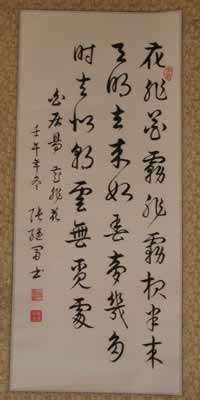 花非花霧非霧夜半来
天明去来如春夢幾多
时去似朝雲無覓處
白居易 花非花
壬午年冬 张继 书